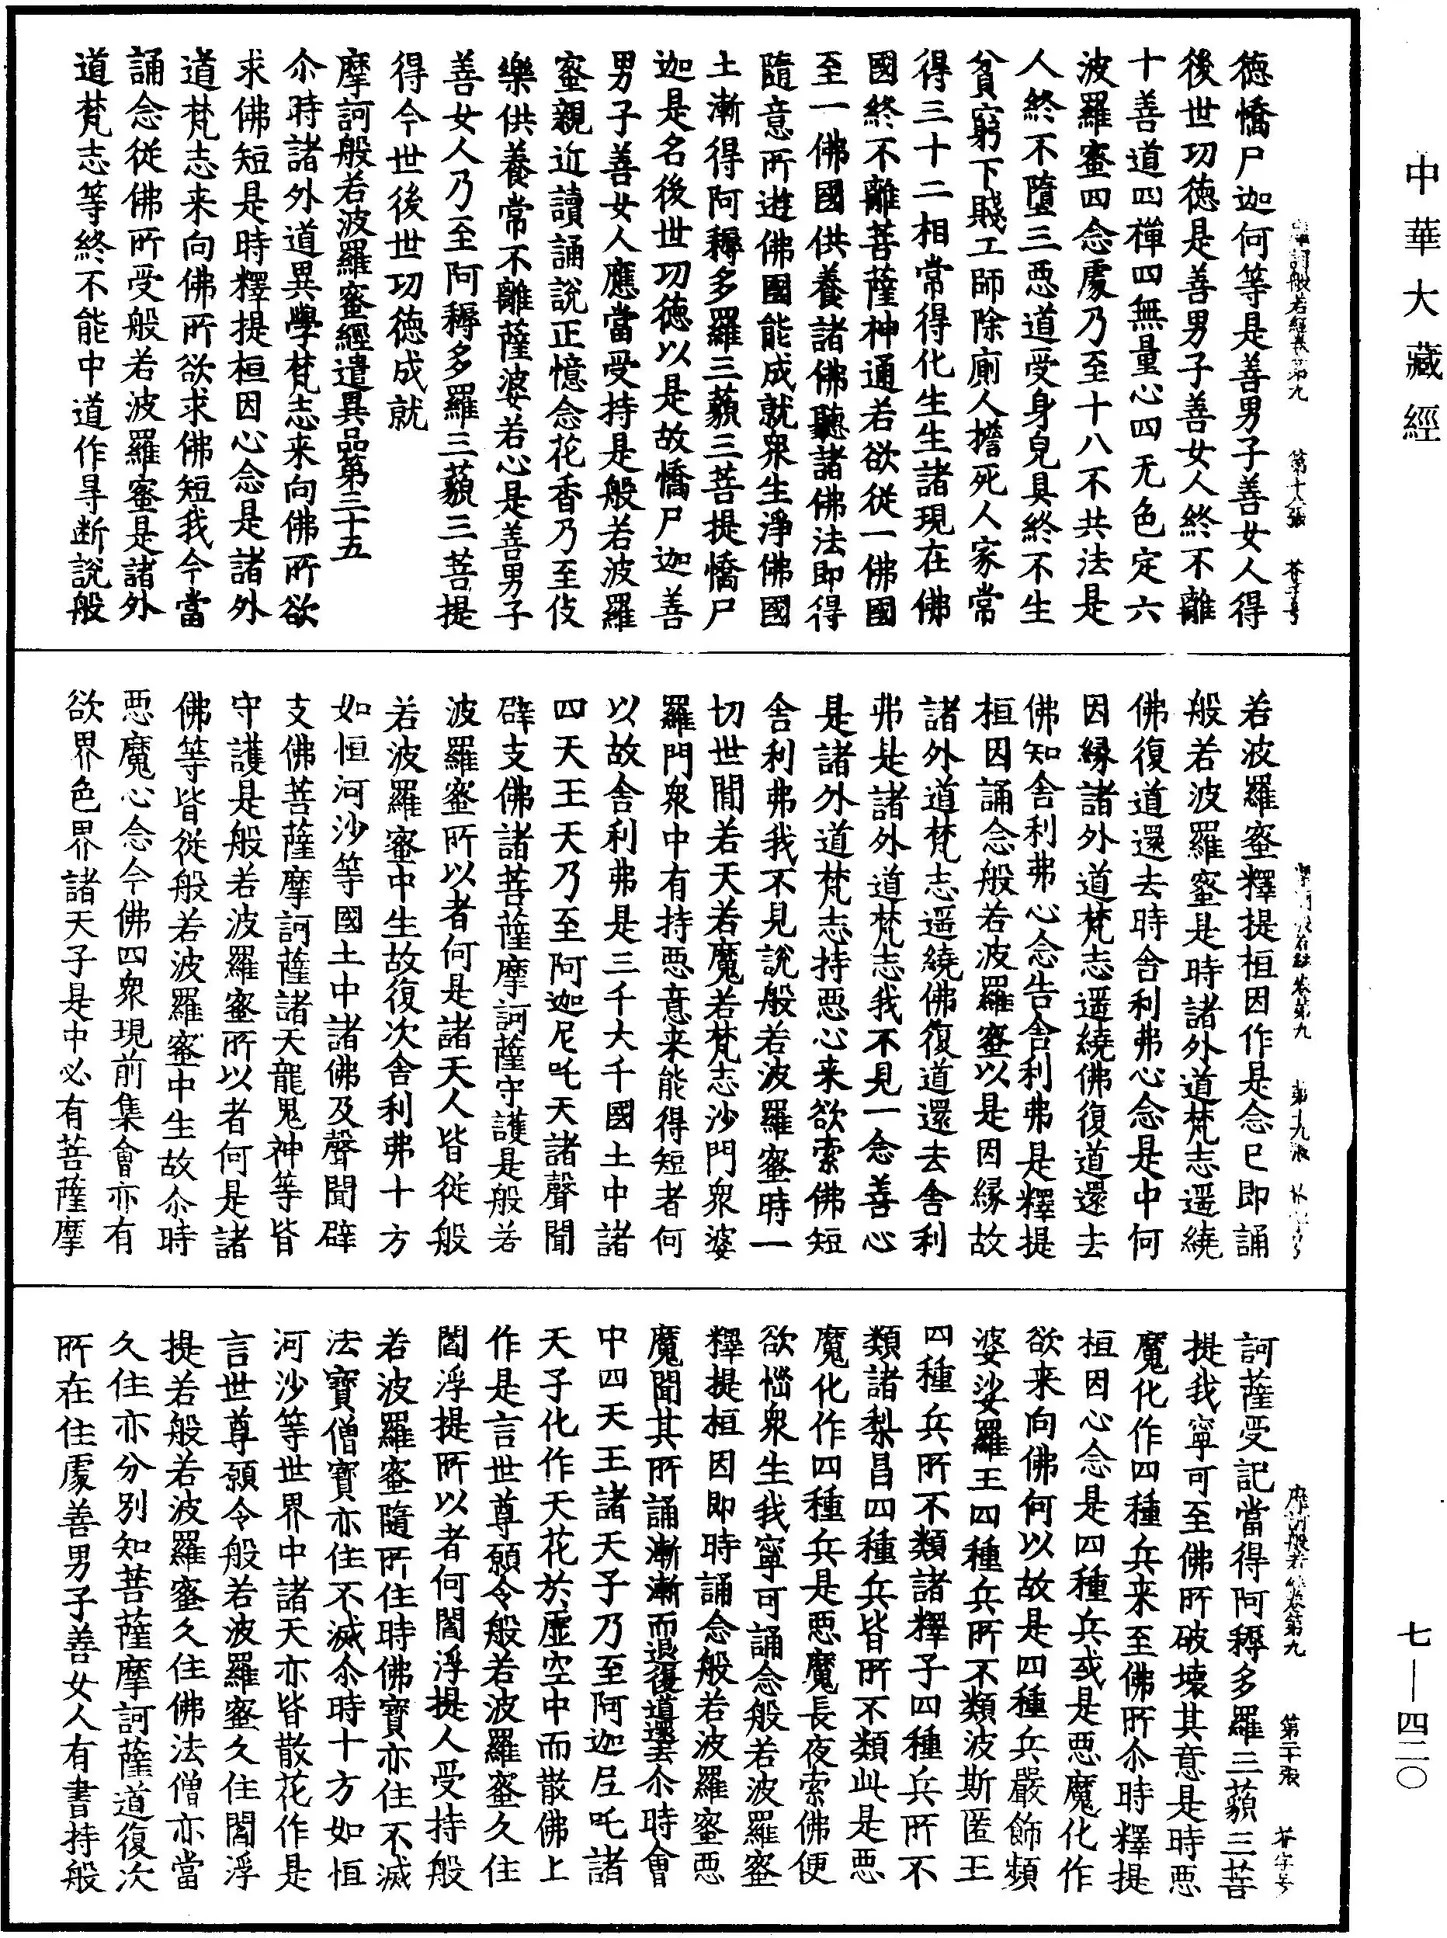 中華大藏經
德憍尸迦何等是善男子善女人得
後世功德是善男子善女人終不離
十善道四禪四無量心四无色定六
波羅蜜四念處乃至十八不共法是
人終不墮三惡道受身皃具終不生
貧窮下賤工師除廁人擔死人家常
得三十二相常得化生生諸現在佛
國終不離菩薩神通若欲從一佛國
至一佛國供養諸佛聽諸佛法即得
隨意所遊佛國能成就衆生淨佛國
土漸得阿耨多羅三藐三菩提憍尸
迦是名後世功德以是故憍尸迦善
男子善女人應當受持是般若波羅
蜜親近讀誦說正憶念花香乃至伎
樂供養常不離薩婆若心是善男子
善女人乃至阿耨多羅三藐三菩提
得今世後世功德成就
摩訶般若波羅蜜經遣異品第三十五
尒時諸外道異學梵志来向佛所欲
求佛短是時釋提桓因心念是諸外
道梵志来向佛所欲求佛短我今當
誦念從佛所受般若波羅蜜是諸外
道梵志等終不能中道作㝵断說般
若波羅蜜釋提桓因作是念已即誦
般若波羅蜜是時諸外道梵志遥繞
佛復道還去時舍利弗心念是中何
因縁諸外道梵志遥繞佛復道還去
佛知舍利弗心念告舍利弗是釋提
桓因誦念般若波羅蜜以是因縁故
諸外道梵志遥繞佛復道還去舍利
弗是諸外道梵志我不見一念善心
是諸外道梵志持惡心来欲索佛短
舍利弗我不見說般若波羅蜜時一
切世間若天若魔若梵志沙門衆婆
羅門衆中有持惡意来能得短者何
以故舍利弗是三千大千國土中諸
四天王天乃至阿迦尼吒天諸聲聞
辟支佛諸菩薩摩訶薩守護是般若
波羅蜜所以者何是諸天人皆從般
若波羅蜜中生故復次舍利弗十方
如恒河沙等國土中諸佛及聲聞辟
支佛菩薩摩訶薩諸天龍鬼神等皆
守護是般若波羅蜜所以者何是諸
佛等皆從般若波羅蜜中生故尒時
惡魔心念今佛四衆現前集會亦有
欲界色界諸天子是中必有菩薩摩
訶薩受記當得阿耨多羅三藐三菩
提我寧可至佛所破壞其意是時惡
魔化作四種兵来至佛所尒時釋提
桓因心念是四種兵或是惡魔化作
欲来向佛何以故是四種兵嚴飾頻
婆娑羅王四種兵所不類波斯匿王
四種兵所不類諸釋子四種兵所不
類諸梨昌四種兵皆所不類此是惡
魔化作四種兵是惡魔長夜索佛便
欲惱衆生我寧可誦念般若波羅蜜
釋提桓因即時誦念般若波羅蜜惡
魔聞其所誦漸漸而退復道還去尒時會
中四天王諸天子乃至阿迦尼吒諸
天子化作天花於虛空中而散佛上
作是言世尊願令般若波羅蜜久住
閻浮提所以者何閻浮提人受持般
若波羅蜜隨所住時佛寶亦住不滅
法寶僧寶亦住不滅尒時十方如恒
河沙等世界中諸天亦皆散花作是
言世尊願令般若波羅蜜久住閻浮
提若般若波羅蜜久住佛法僧亦當
久住亦分別知菩薩摩訶薩道復次
所在住處善男子善女人有書持般
七—四二〇